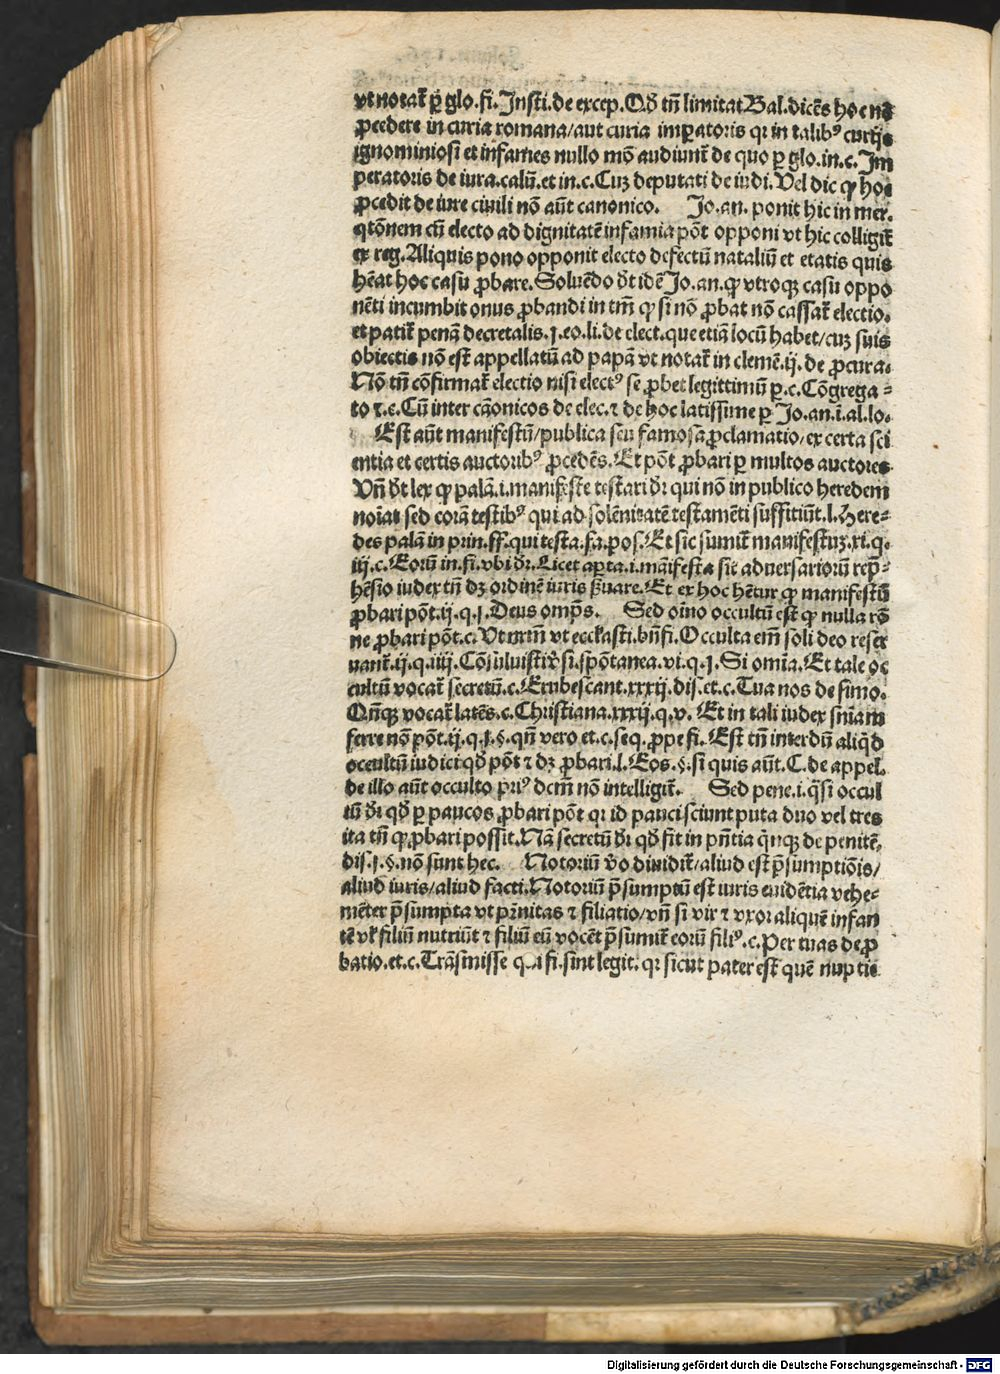 vt notat᷑ ꝑ glo.fi.Insti.de excep.Qd̄ tn̄ limitat Bal.dicēs hoc nō
ꝓcedere in curia romana/aut curia imꝑatoris qꝛ in talibꝰ curijs
ignominiosi et infames nullo mō audiunt᷑ de quo ꝑ glo.in.c.Im
peratoris de iura.calū.et in.c.Cuꝫ deputati de iudi.Vel dic ꝙ hoc
ꝓcedit de iure ciuili nō aūt canonico. Jo.an. ponit hic in mer.
qtōnem cū electo ad dignitatē infamia pōt opponi vt hic colligit᷑
ex reg.Aliquis pono opponit electo defectū nataliū et etatis quis
hēat hoc casu ꝓbare.Soluēdo dt̄ idē Jo.an.ꝙ vtroqꝫ casu oppo
nēti incumbit onus ꝓbandi in tm̄ ꝙ si nō ꝓbat nō cassat᷑ electio.
et patit᷑ penā decretalis.j.eo.li.de elect.que etiā locū habet/cuꝫ suis
obiectis nō est appellatū ad papā vt notat᷑ in clemē.ij. de ꝓcura.
Nō tn̄ cōfirmat᷑ electio nisi electꝰ se ꝓbet legittimū ꝑ.c.Cōgrega⸗
to ⁊.c.Cū inter cāonicos de elec.⁊ de hoc latissime ꝑ Jo.an.ī.al.lo.
Est aūt manifestū/publica seu famosa ꝓclamatio/ex certa sci
entia et certis auctoribꝰ ꝓcedēs.Et pōt ꝓbari ꝑ multos auctores
Vn̄ dt̄ lex ꝙ palā.i.manifeste testari dr̄ qui nō in publico heredem
noīat sed corā testibꝰ qui ad solēnitatē testamēti suffitiūt.l.Here⸗
des palā in prin.ff.qui testa.fa.pos.Et sic sumit᷑ manifestuꝫ.xi.q.
iij.c.Eorū in.fi.vbi dr̄.Licet aꝑta.i.maifesta sit aduersariorū rep̄⸗
hēsio iudex tn̄ dꝫ ordinē iuris ẜuare.Et ex hoc hētur ꝙ manifestū
ꝓbari pōt.ij.q.j.Deus omp̄s. Sed oīno occultū est ꝙ nulla rō
ne ꝓbari pōt.c.Vt nrm̄ vt ecclasti.bn̄fi.Occulta em̄ soli deo reser
uant᷑.ij.q.iiij.Cōsuluisti si.spōtanea.vi.q.j.Si omīa.Et tale oc
cultū vocat᷑ secretū.c.Erubescant.xxxij.dis.et.c.Tua nos de simo.
Qn̄qꝫ vocat᷑ latēs.c.Christiana.xxxij.q.v. Et in tali iudex sniam
ferre nō pōt.ij.q.j.§.qn̄ vero et.c.seq.ꝓpe fi. Est tn̄ interdū aliqd̄
occultū iudici qd̄ pōt ⁊ dꝫ ꝓbari.l.Eos.§.si quis aūt.C.de appel.
de illo aūt occulto priꝰ dcm̄ nō intelligit᷑. Sed pene.i.q̄si occul
tū dr̄ qd̄ ꝑ paucos ꝓbari pōt qꝛ id pauci sciunt puta duo vel tres
ita tn̄ ꝙ ꝓbari possit.Nā secretū dr̄ qd̄ fit in pn̄tia qnqꝫ de penitē.
dis.j.§.nō sunt hec. Notoriū v̄o diuidit᷑/aliud est p̄sumptiōis/
aliud iuris/aliud facti.Notoriū p̄sumptū est iuris euidētia vehe⸗
mēter p̄sumpta vt pr̄nitas ⁊ filiatio/vn̄ si vir ⁊ vxor aliquē infan
tē vt filiū nutriūt ⁊ filiū eū vocēt p̄sumit᷑ eorū filiꝰ.c.Per tuas de ꝓ
batio.et.c.Trāsmisse qui fi.sint legit. qꝛ sicut pater est quē nuptie
Digitalisierung gefördert durch die Deutsche Forschungsgemeinschaft - DFG